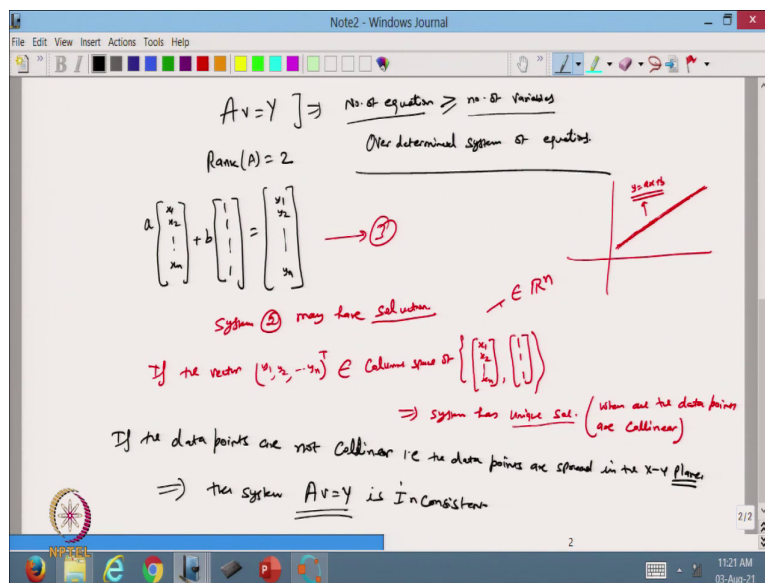 Note2 - Windows Journal
File Edit View Insert Actions Tools Help
Av=Y ] ⇒ No. of equation ≥ no. of variables
Rank(A) = 2
Over determined system of equations.
y=ax+b
a [x1 x2 ⋮ xn] + b [1 1 1 1] = [y1 y2 | yn] → (I)
∈ ℝ^n
System may have solution.
If the vector (y1, y2, --- yn)^T ∈ Column space of {[x1 x2 | xn], [1 1 1 1]}
⇒ System has unique sol. (when all the data points are Collinear)
If the data points are not Collinear i.e the data points are spread in the X-Y plane.
⇒ the system Av=Y is Inconsistent
NPTEL
2
2/2
11:21 AM
03-Aug-21